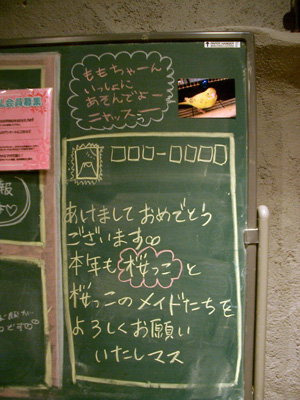 ももちゃーん
いっしょに
あそんでよー
ニャッスー
会員募集
報
あけまして おめでとう
ございます∞
本年も 桜っこ と
桜っこのメイドたちを
よろしくお願い
いたしマス